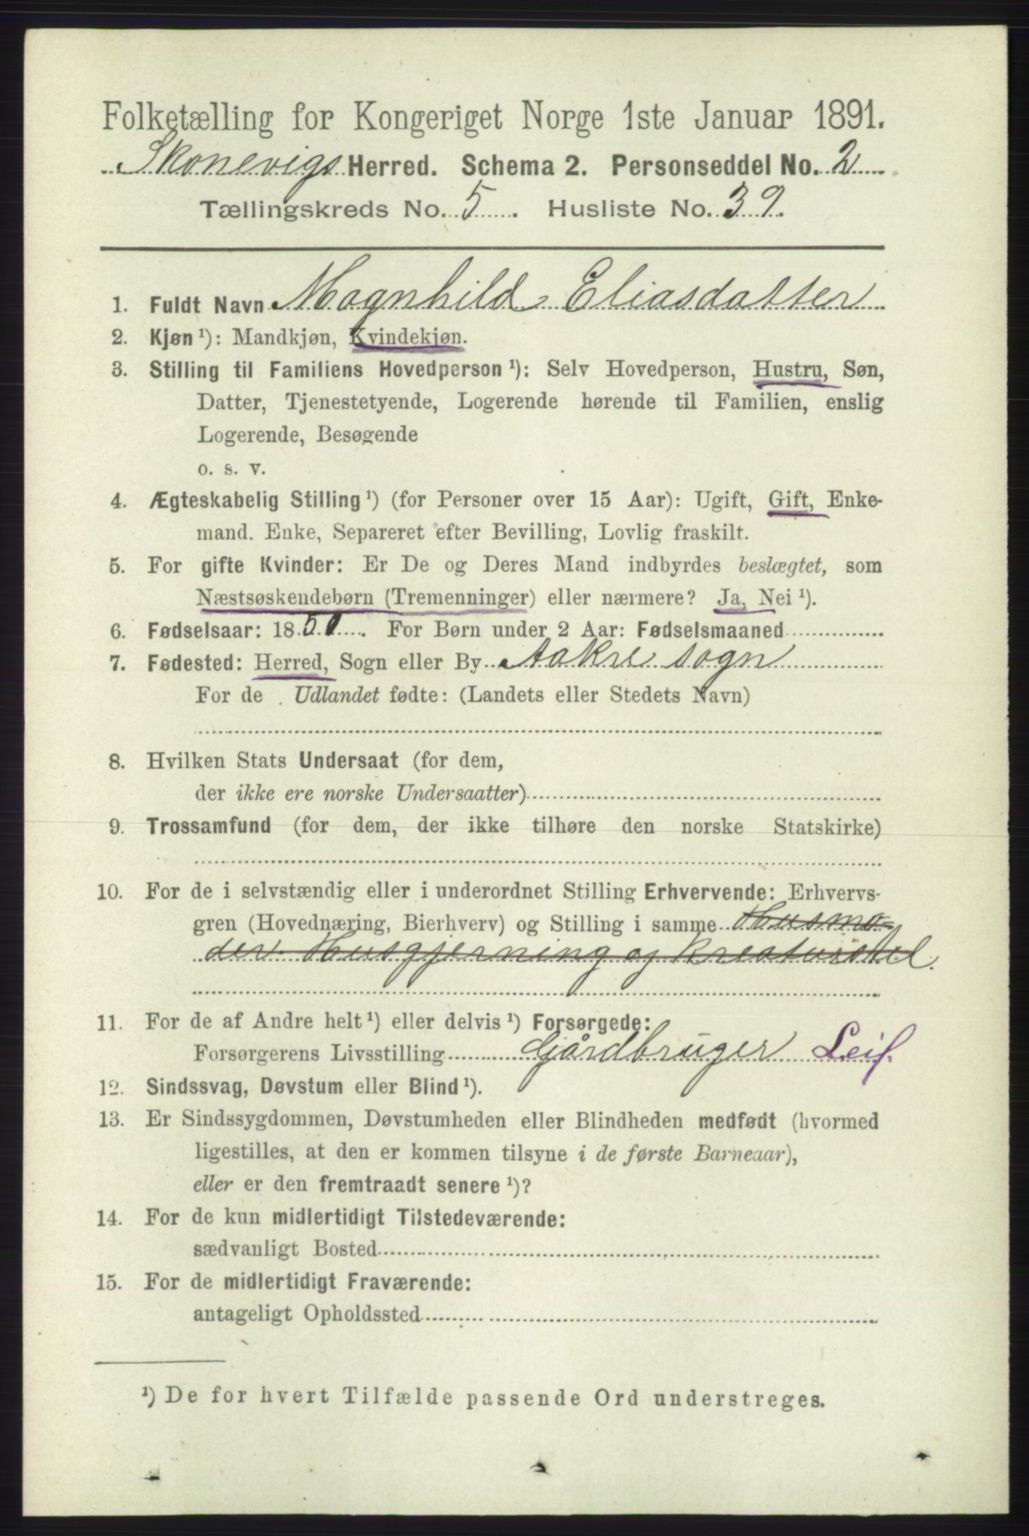 Folketælling for Kongeriget Norge 1ste Januar 1891.
Skonevigs Herred. Schema 2. Personseddel No. 2
Tællingskreds No. 5. Husliste No. 39.
1. Fuldt Navn Magnhild Eliasdatter
2. Kjøn ¹): Mandkjøn, Kvindekjøn.
3. Stilling til Familiens Hovedperson ¹): Selv Hovedperson, Hustru, Søn,
Datter, Tjenestetyende, Logerende hørende til Familien, enslig
Logerende, Besøgende
o. s. v.
4. Ægteskabelig Stilling ¹) (for Personer over 15 Aar): Ugift, Gift, Enke-
mand. Enke, Separeret efter Bevilling, Lovlig fraskilt.
5. For gifte Kvinder: Er De og Deres Mand indbyrdes beslægtet, som
Næstsøskendebørn (Tremenninger) eller nærmere? Ja, Nei ¹).
6. Fødselsaar: 1850. For Børn under 2 Aar: Fødselsmaaned
7. Fødested: Herred, Sogn eller By Aakre sogn
For de Udlandet fødte: (Landets eller Stedets Navn)
8. Hvilken Stats Undersaat (for dem,
der ikke ere norske Undersaatter)
9. Trossamfund (for dem, der ikke tilhøre den norske Statskirke)
10. For de i selvstændig eller i underordnet Stilling Erhvervende: Erhvervs-
gren (Hovednæring, Bierhverv) og Stilling i samme Husmo-
der Husgjerning og Kreaturstel.
11. For de af Andre helt ¹) eller delvis ¹) Forsørgede:
Forsørgerens Livsstilling Gårdbruger Leif.
12. Sindssvag, Døvstum eller Blind ¹).
13. Er Sindssygdommen, Døvstumheden eller Blindheden medfødt (hvormed
ligestilles, at den er kommen tilsyne i de første Barneaar),
eller er den fremtraadt senere ¹)?
14. For de kun midlertidigt Tilstedeværende:
sædvanligt Bosted
15. For de midlertidigt Fraværende:
antageligt Opholdssted
¹) De for hvert Tilfælde passende Ord understreges.